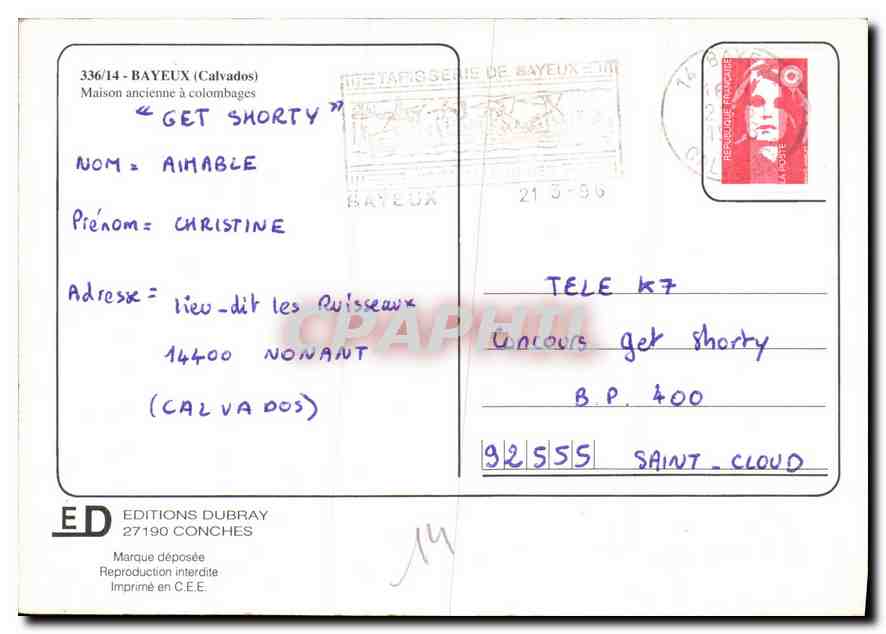 336/14 - BAYEUX (Calvados)
Maison ancienne à colombages
"GET SHORTY"
NOM = AIMABLE
Prénom = CHRISTINE
Adresse = lieu-dit les Ruisseaux
14400 NONANT
(CALVADOS)
TAPISSERIE DE BAYEUX
BAYEUX
21 3-96
14 BAYE
REPUBLIQUE FRANÇAISE
LA POSTE
TELE K7
Concours get shorty
B.P. 400
92555 SAINT-CLOUD
CPAPHIL
ED
EDITIONS DUBRAY
27190 CONCHES
Marque déposée
Reproduction interdite
Imprimé en C.E.E.
14